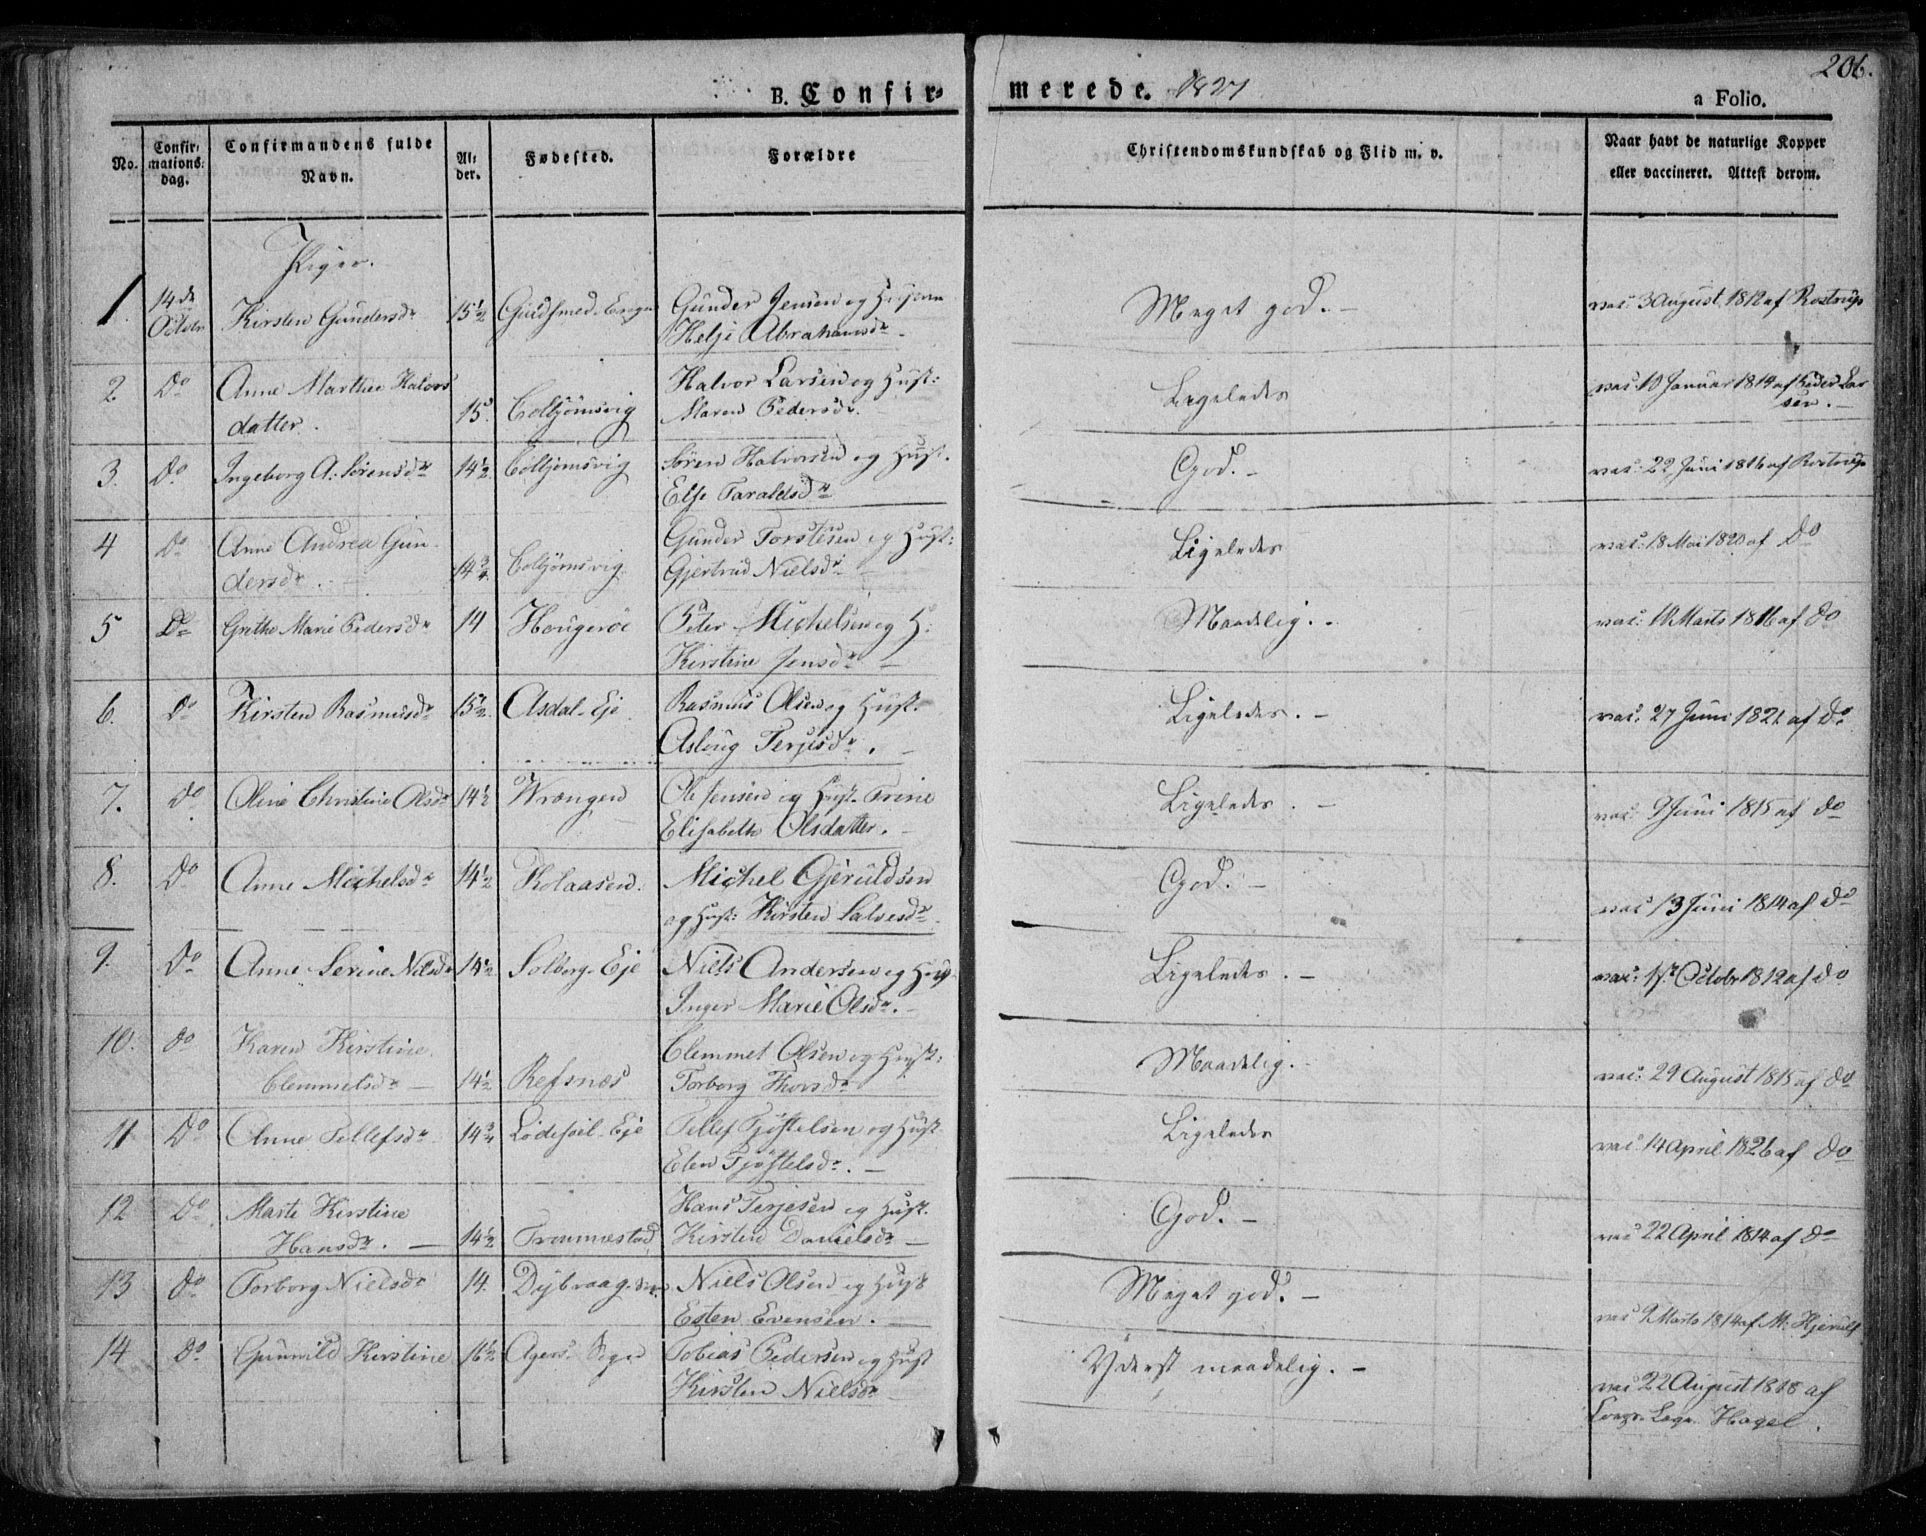 206.
B. Confir-
merede. 1827
a Folio.
No.
Confir-
mations-
dag.
Confirmandens fulde
Navn.
Al-
der.
Fødested.
Forældre
Christendomskundskab og Flid m. v.
Naar havt de naturlige Kopper
eller vaccineret. Attest derom.
Piger.
1 14de Octobr Kirsten Gundersdr 15½ Gunder Jensen og
Helje Abrahamsdr
Meget god. –
vac: 3 August 1812 af Rostrup
2 Do Anne Marthe Halvors
datter. 15 Coltjömsvig Halvor Larsen og Hust:
Maren Pedersdr.
Ligeledes
vac: 10 Januar 1814 af Peder Lar
sen. –
3. Do Ingeborg A: Sörensdr 14½ Coltjömsvig Sören Halvorsen og Hust.
Else Taraldsdr
God. –
vac: 22 Juni 1816 af Rostrup
4 Do Anne Andrea Gun
dersdr. 14¾ Coltjömsvig Gunder Torstesen og Hust:
Gjertrud Nielsdr –
Ligeledes
vac: 18 Mai 1820 af Do
5 Do Grethe Marie Pedersdr 14 Hougeröe Peter Michelsen og H:
Kirstine Jensdr –
Maadelig. –
vac: 10 Marts 1816 af Do
6. Do Kirsten Rasmusdr 15½ Asdal-Eje Rasmus Olsen og Hust.
Asloug Terjesdr. –
Ligeledes. –
vac: 27 Juni 1821 af Do
7. Do Oline Christine Olsdr 14½ Wrængen Ole Jensen og Hust. Trine
Elisabeth Olsdatter. –
Ligeledes. –
vac: 9 Juni 1815 af Do
8. Do Anne Michelsdr 14½ Kolaasen. Michel Gjeruldsen
og Hust: Kirsten Salvesdr.
God. –
vac: 13 Juni 1814 af Do
9. Do Anne Serine Nielsdr 14½ Solberg-Eje Niels Andersen og Hust
Inger Marie Olsdr. –
Ligeledes. –
vac: 1ste Octobr 1812 af Do
10. Do Karen Kirstine
Clemmetsdr – 14½ Refsnæs Clemmet Olsen og Hust:
Torborg Thorsdr
Maadelig. –
vac: 29 August 1815 af Do
11 Do Anne Tellefsdr 14¾ Lödesöel-Eje Tellef Tjöstelsen og Hust
Elen Tjöstelsdr. –
Ligeledes
vac: 14 April 1826 af Do
12 Do Marte Kirstine
Hansdr. – 14½ Frommestad Hans Terjesen og Hust.
Kirsten Danielsdr –
God. –
vac 22 April 1814 af Do
13 Do Torborg Nielsdr 14. Dybvaag Niels Olsen og Hust
Esten Evensen. –
Meget god. –
vac 9 Marts 1814 af M: Hjerulf
14 Do Gunnild Kirstine 16½ Agers Sogn Tobias Pedersen og Hust
Kirsten Nielsdr –
Yderst maadelig. –
vac 22 August 1818 af
Corps-Læge Hagel.